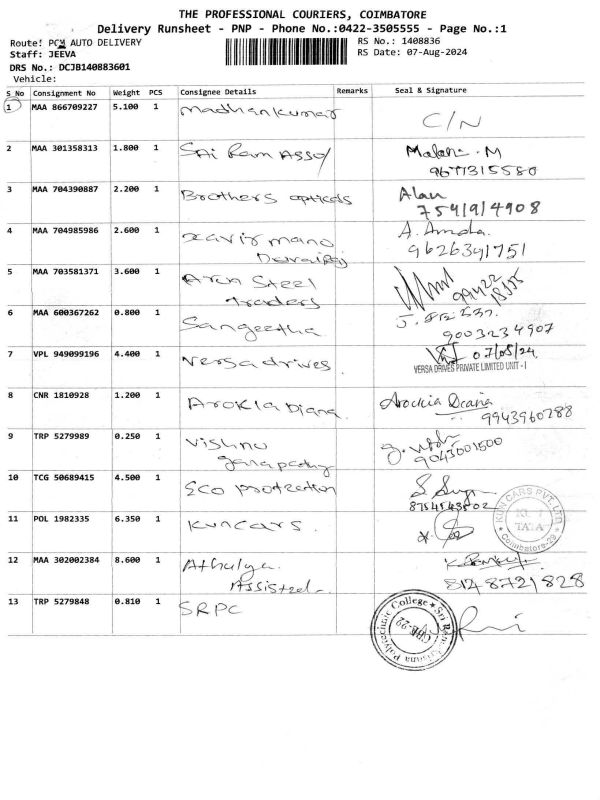 THE PROFESSIONAL COURIERS, COIMBATORE
Delivery Runsheet - PNP - Phone No.:0422-3505555 - Page No.:1
Route! PCM AUTO DELIVERY
RS No.: 1408836
Staff: JEEVA
RS Date: 07-Aug-2024
DRS No.: DCJB140883601
Vehicle:
S_No Consignment No Weight PCS Consignee Details Remarks Seal & Signature
1 MAA 866709227 5.100 1 Madhankumar C/N
2 MAA 301358313 1.800 1 SAi Ram Asso/ M
9677315580
3 MAA 704390887 2.200 1 Brothers opticals Alan
7541914908
4 MAA 704985986 2.600 1 xavir mano A.
9626341751
5 MAA 703581371 3.600 1 Arun Steel
traders 99422
6 MAA 600367262 0.800 1 Sangeetha
9003234907
7 VPL 949099196 4.400 1 Versa drives 07/08/24
VERSA DRIVES PRIVATE LIMITED UNIT - I
8 CNR 1810928 1.200 1 Arokia Diana Arockia Diana
9943960288
9 TRP 5279989 0.250 1 Vishnu
ganapathy 9043001500
10 TCG 50689415 4.500 1 Eco protection
8754543502
11 POL 1982335 6.350 1 Kuncars.
KUN CARS PVT. LTD
TATA
Coimbatore-29
12 MAA 302002384 8.600 1 Athulya
Assisted 8148721828
13 TRP 5279848 0.810 1 SRPC
Sri Ramakrishna Polytechnic College
CBE-22